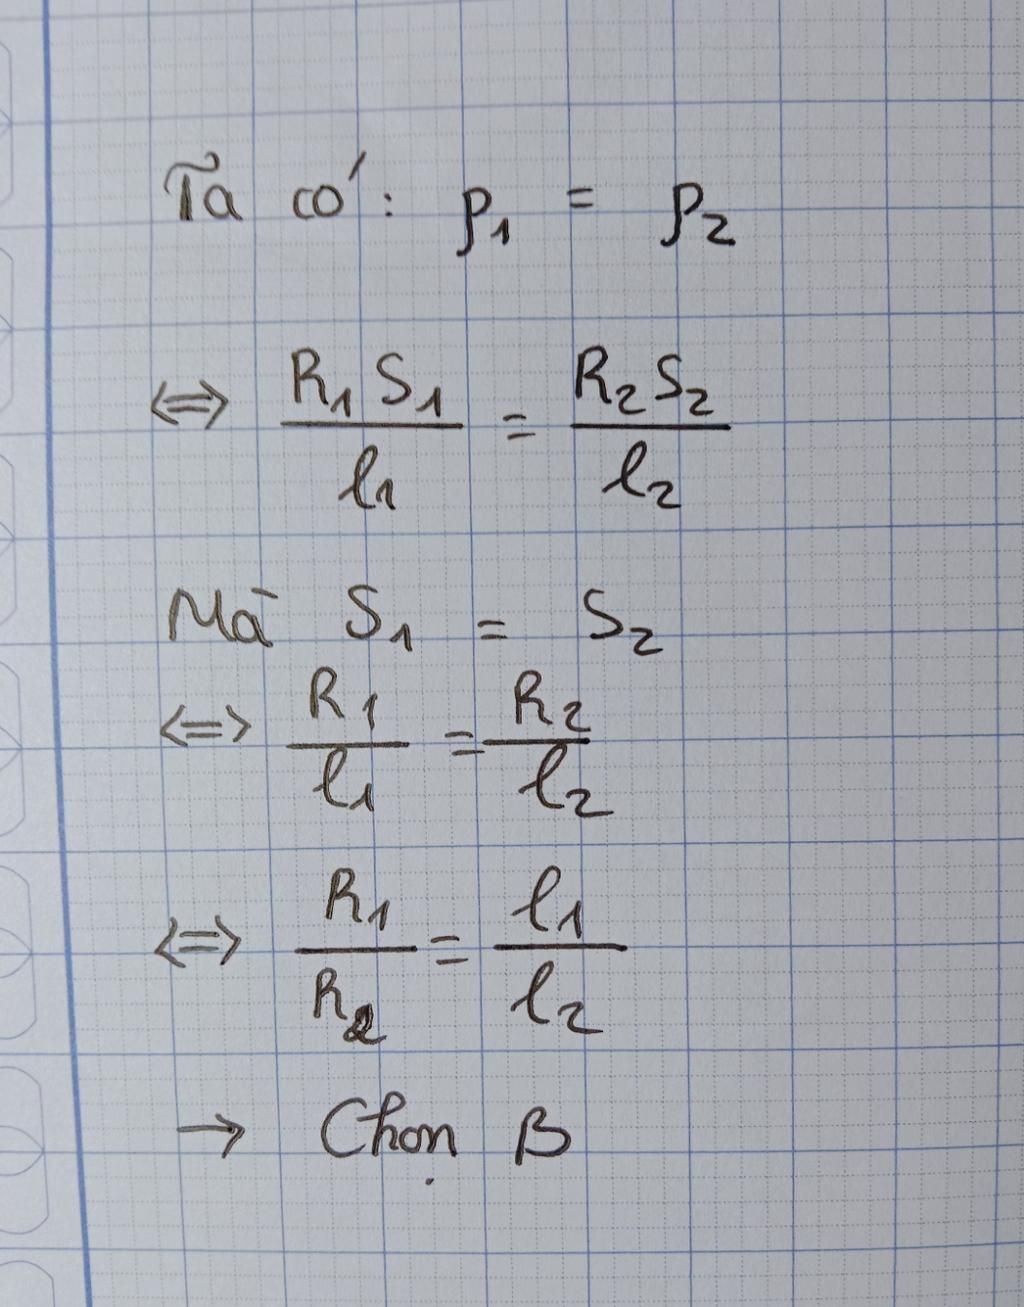 Ta có: ρ₁ = ρ₂
⇔ R₁S₁/l₁ = R₂S₂/l₂
Mà S₁ = S₂
⇔ R₁/l₁ = R₂/l₂
⇔ R₁/R₂ = l₁/l₂
→ Chọn B